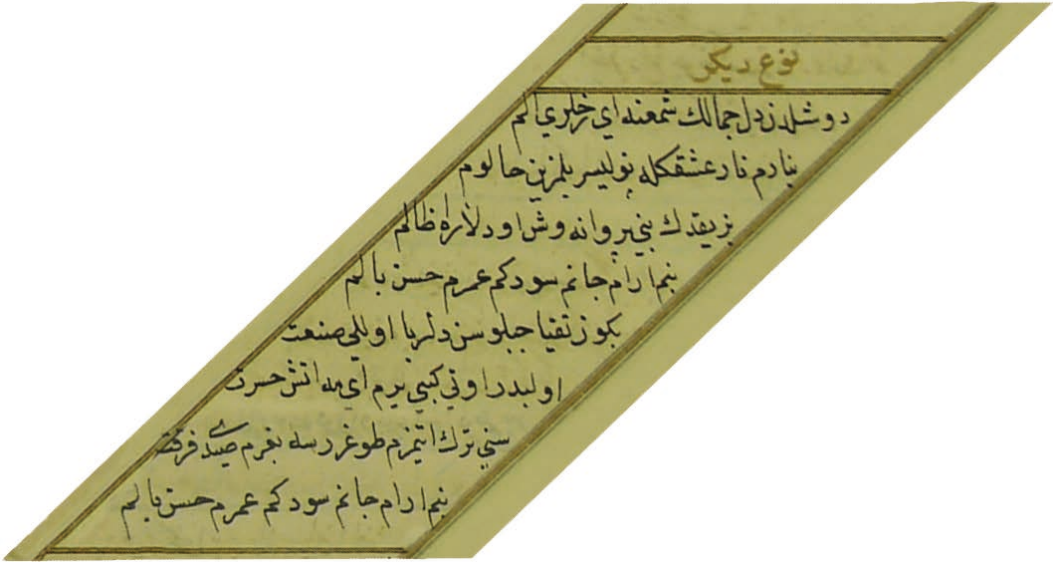 نوع ديكر
دوشلدن دل جمالك شمعنه اي زلري آلم
ينارم نار عشقكله نوليسر بلمزين حالوم
بزيقدك بني پروانه وش اودلاره ظالم
بنم ارام جانم سودكم عمرم حسن بالم
بكوز تقيا جبلوسن دلربا اوللي صنعت
اولبدر اوتي كبي يرم اي مه اتش حسرت
سني ترك اتيمزم طوغررسه بغرم فرقت
بنم ارام جانم سودكم عمرم حسن بالم